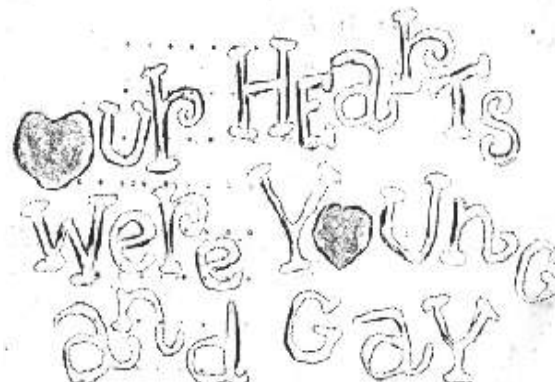 Our Hearts
Were Young
and Gay